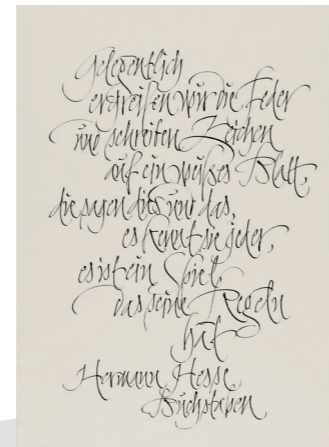 Gelegentlich
ergreifen wir die Feder
und schreiben Zeichen
auf ein weißes Blatt,
die sagen dies und das,
es kennt sie jeder,
es ist ein Spiel,
das seine Regeln
hat
Hermann Hesse,
Buchstaben